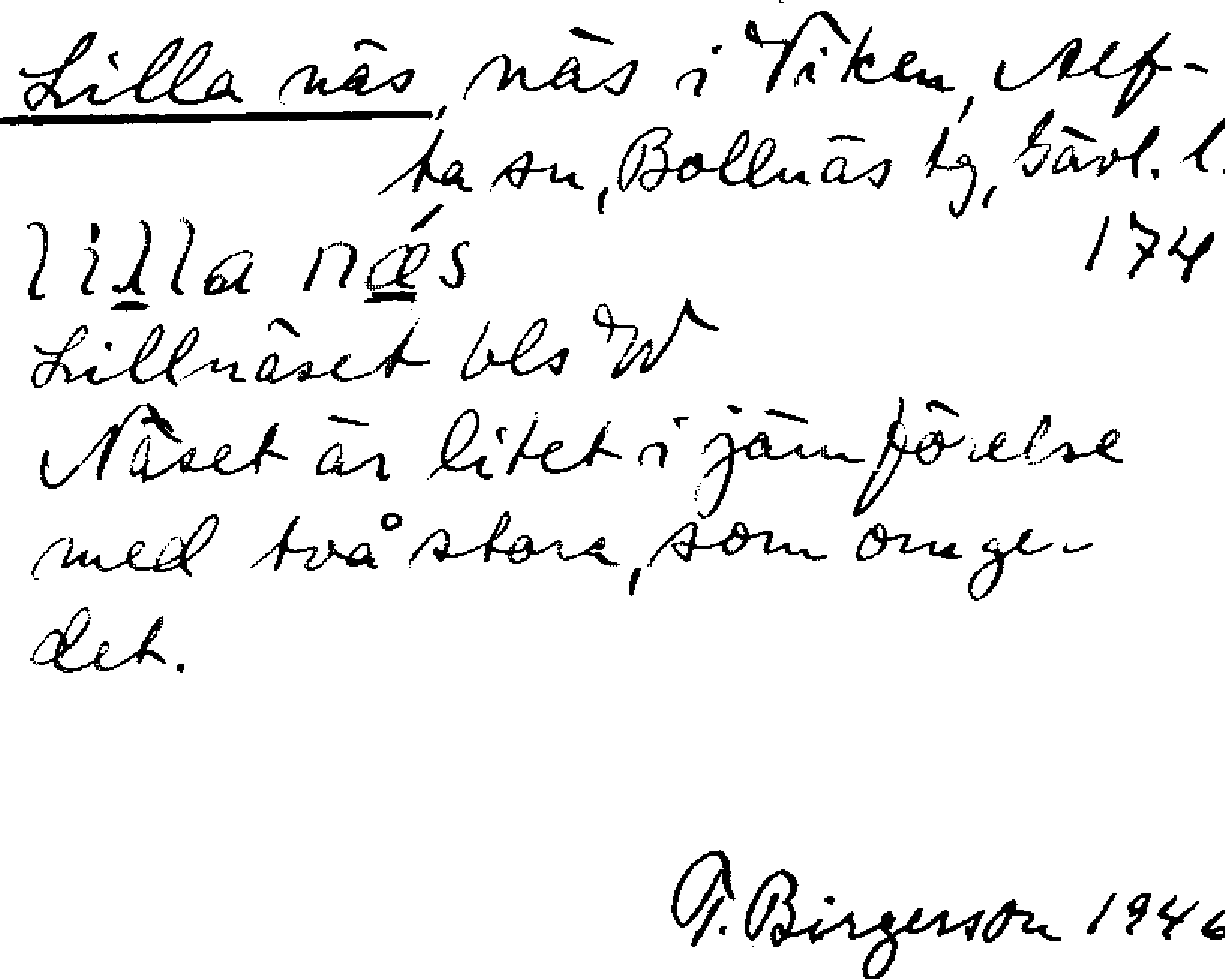 Lilla näs, näs i Viken, Alf-
ta sn, Bollnäs tg, Gävl. l.
174
lilla nǽs
Lillnäset bls W
Näset är litet i jämförelse
med två stora, som omge-
det.
T. Birgerson 1946